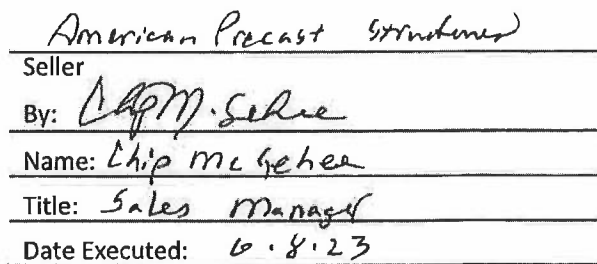 American Precast Structures
Seller
By: Chip McGehee
Name: Chip McGehee
Title: Sales Manager
Date Executed: 6.8.23